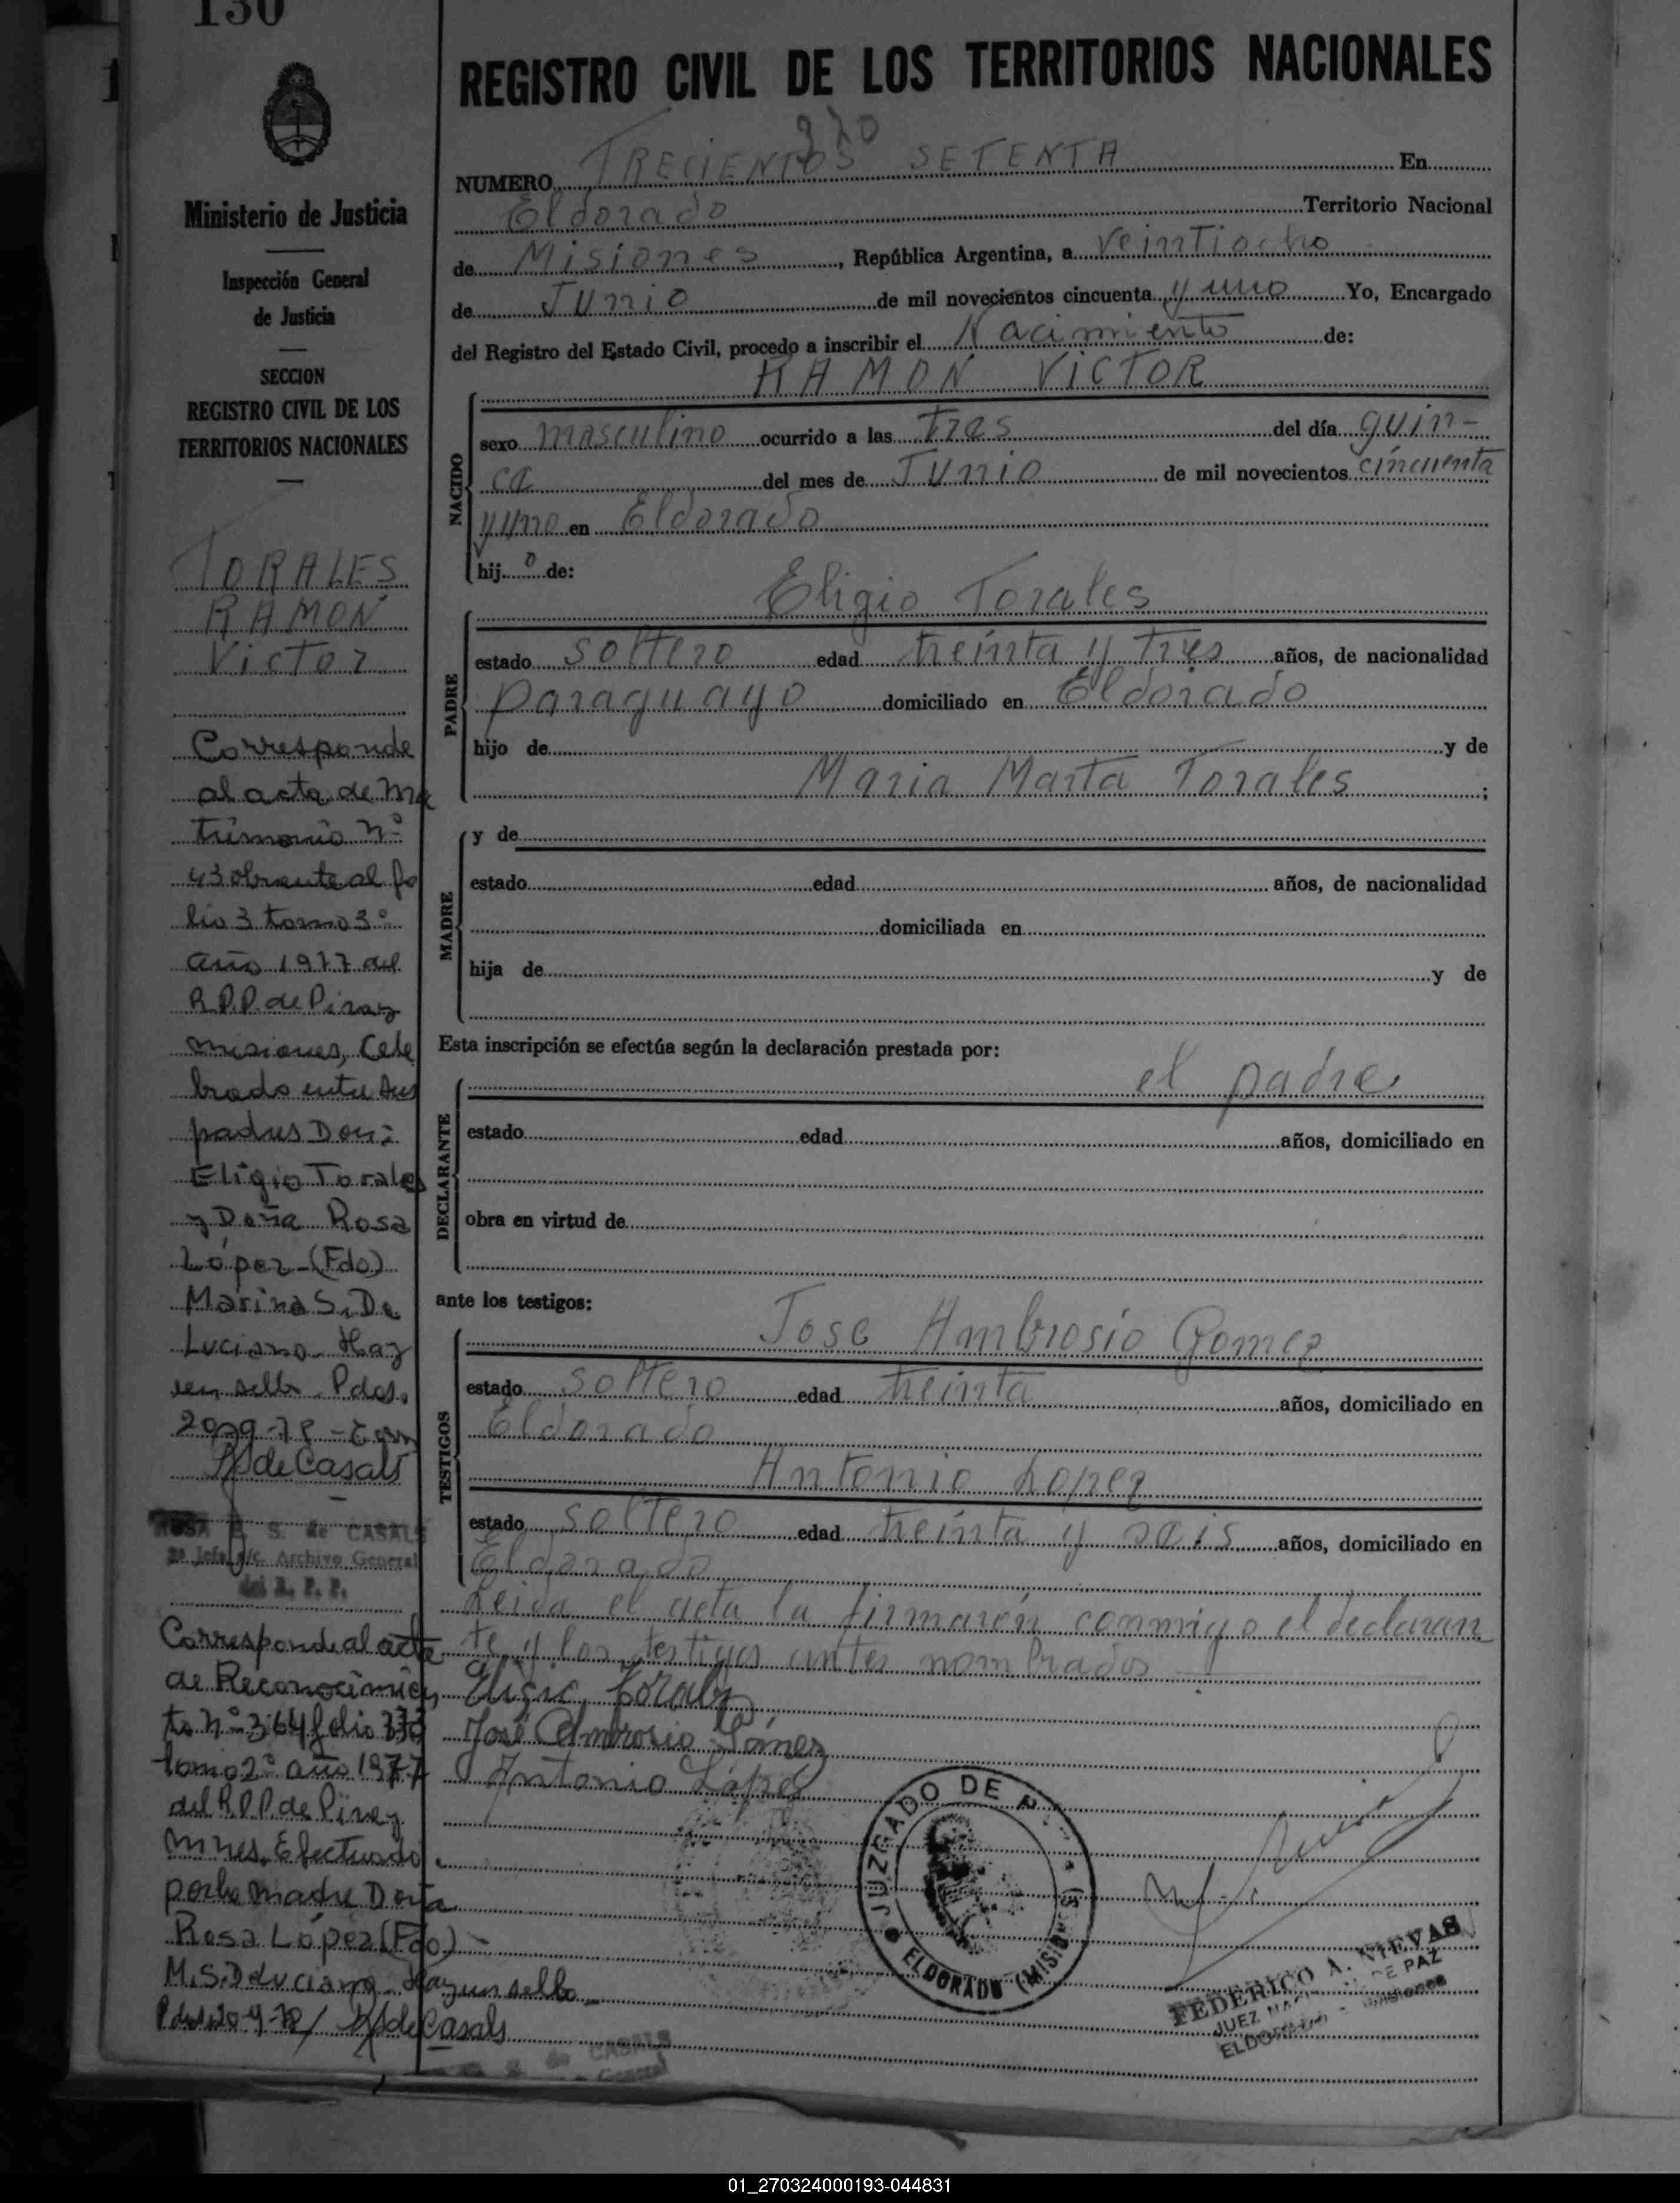 130
REGISTRO CIVIL DE LOS TERRITORIOS NACIONALES
Ministerio de Justicia
Inspección General
de Justicia
SECCION
REGISTRO CIVIL DE LOS
TERRITORIOS NACIONALES
TORALES
RAMON
Victor
Corresponde
al acta de Ma
trimonio Nº
43 obrante al fo
lio 3 tomo 3º
año 1977 del
R.P.P. de Piray
misiones, Cele
brado entre sus
padres Don:
Eligio Torales
y Doña Rosa
López-(Fdo)
Marina S. De
Luciano. Hay
un sello. Pdas.
20-9-78
de Casals
ROSA S. de CASALS
2ª Jefa a/c. Archivo General
del R. P. P.
Corresponde al acta
de Reconocimien
to Nº 364 folio 373
tomo 2º año 1977
del R.P.P. de Piray
Mnes. Efectuado
por la madre Doña
Rosa López (Fdo)-
M.S.D Luciano. Hay un sello
Pdas 20-9-78/ de Casals
CASALS
General
370
NUMERO TRECIENTOS SETENTA En
Eldorado Territorio Nacional
de Misiones, República Argentina, a veintiocho
de Junio de mil novecientos cincuenta y uno Yo, Encargado
del Registro del Estado Civil, procedo a inscribir el Nacimiento de:
RAMON VICTOR
NACIDO
sexo masculino ocurrido a las tres del día quin-
ce del mes de Junio de mil novecientos cincuenta
y uno en Eldorado
hijo de:
Eligio Torales
PADRE
estado soltero edad treinta y tres años, de nacionalidad
paraguayo domiciliado en Eldorado
hijo de y de
Maria Marta Torales;
MADRE
y de
estado edad años, de nacionalidad
domiciliada en
hija de y de
Esta inscripción se efectúa según la declaración prestada por:
el padre
DECLARANTE
estado edad años, domiciliado en
obra en virtud de
ante los testigos:
TESTIGOS
Jose Ambrosio Gomez
estado soltero edad treinta años, domiciliado en
Eldorado
Antonio Lopez
estado soltero edad treinta y seis años, domiciliado en
Eldorado
Leida el acta la firmarón conmigo el declaran
te y los testigos antes nombrados
Eligio Torales
José Ambrosio Gómez
Antonio López
JUZGADO DE P
ELDORADO (MISIONES)
FEDERICO A. NIEVAS
JUEZ NACIONAL DE PAZ
ELDORADO - Misiones
01_270324000193-044831